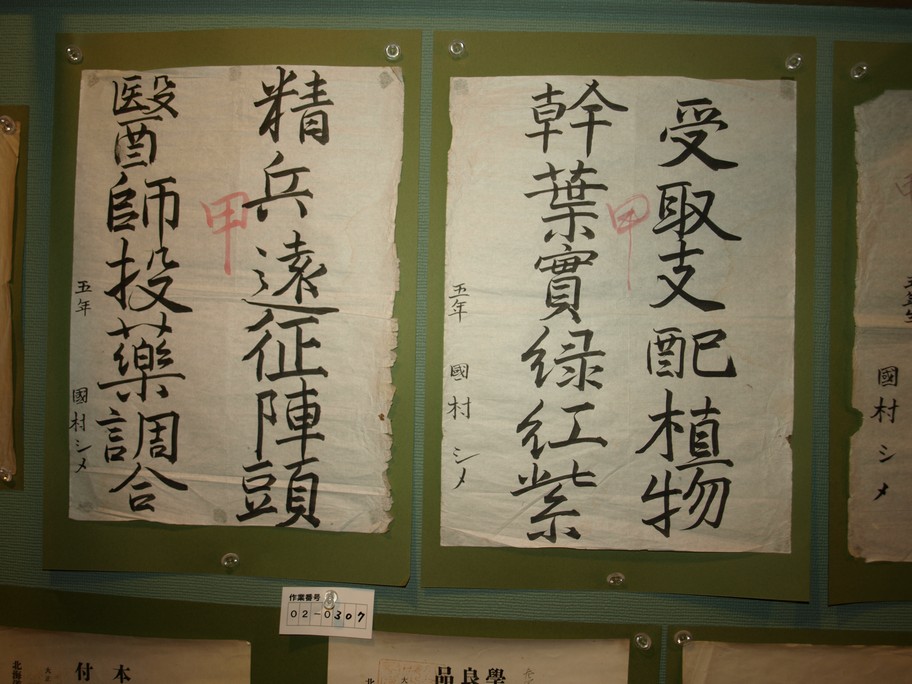 受取支配植物
幹葉實緑紅紫
甲
五年 國村シメ
精兵遠征陣頭
醫師投藥調合
甲
五年 國村シメ
國村シメ
作業番号
02-0307
品良學
付本